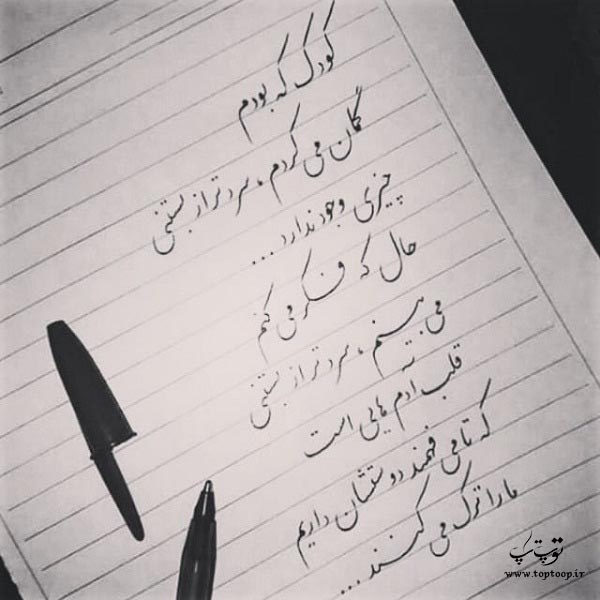 کودک که بودم
گمان می کردم ، سردتر از بستنی
چیزی وجود ندارد ...
حال که فکر می کنم
می بینم ، سردتر از بستنی
قلب آدم هایی است
که تا می فهمند دوستشان داریم
ما را ترک می کنند ...
توپتاپ
www.toptoop.ir